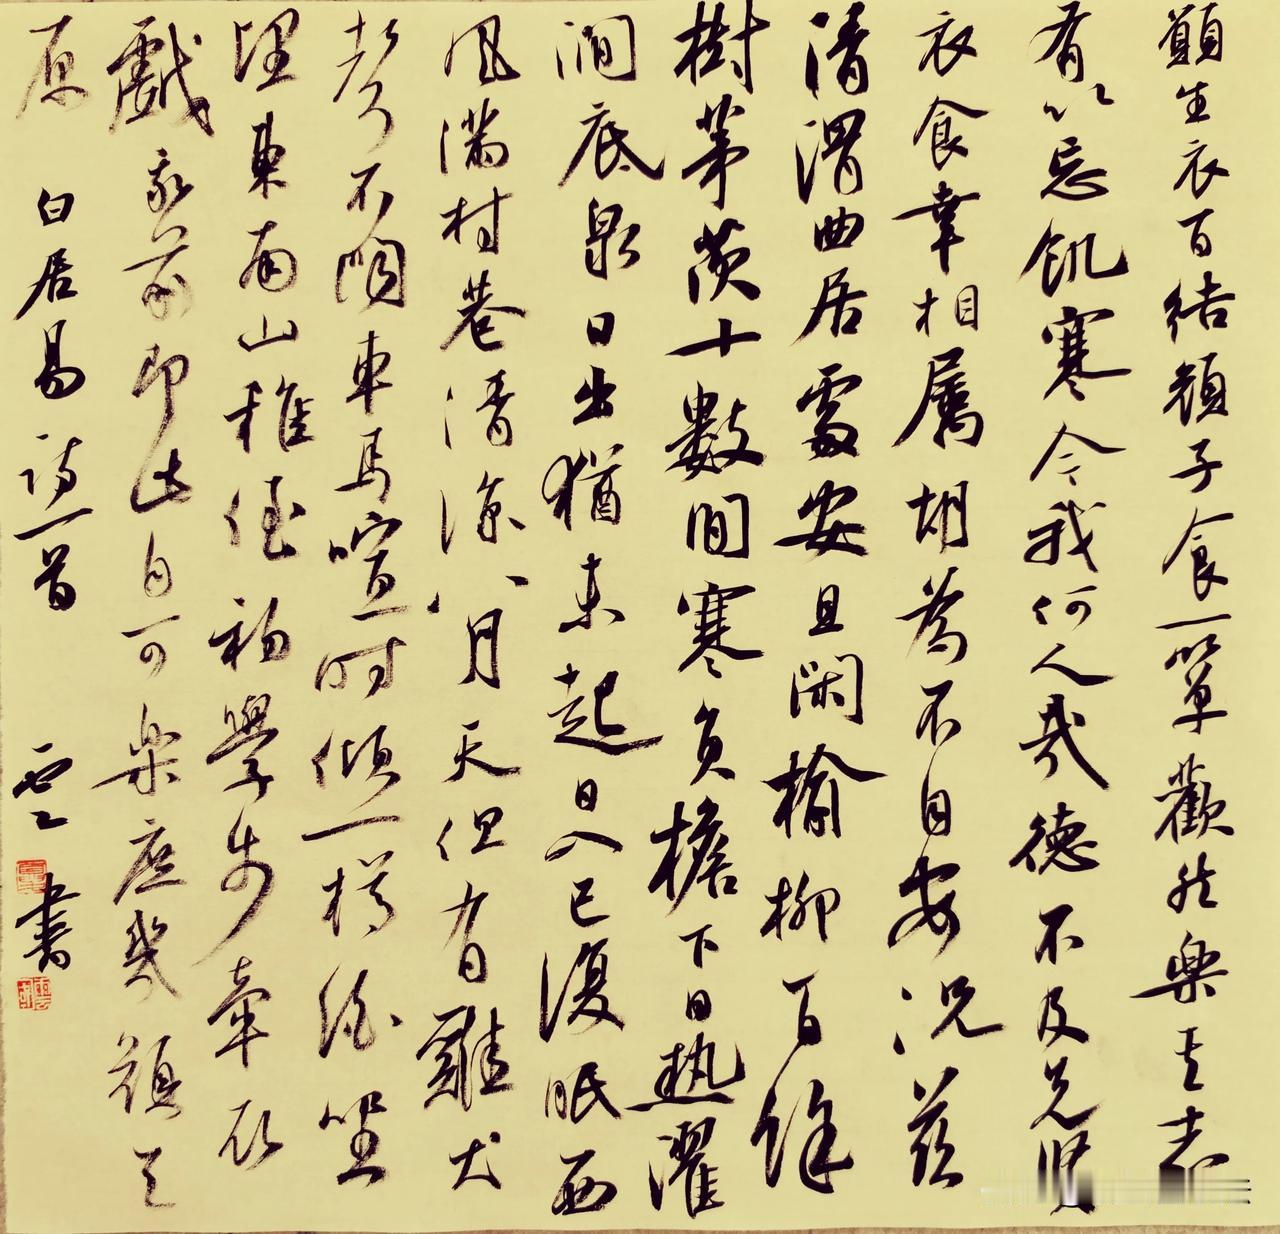 願生衣百結顏子食一簞歡然樂其志
有以忘飢寒今我何人哉德不及先賢
衣食幸相屬胡為不自安況茲
清渭曲居處安且閑榆柳百餘
樹茅茨十數間寒負檐下日熱濯
澗底泉日出猶未起日入已復眠西
風滿村巷清涼八月天但有雞犬
聲不聞車馬喧時傾一樽酒坐
望東南山稚侄初學步牽衣
戲我前即此自可樂庶幾顏與
原 白居易詩一首 書